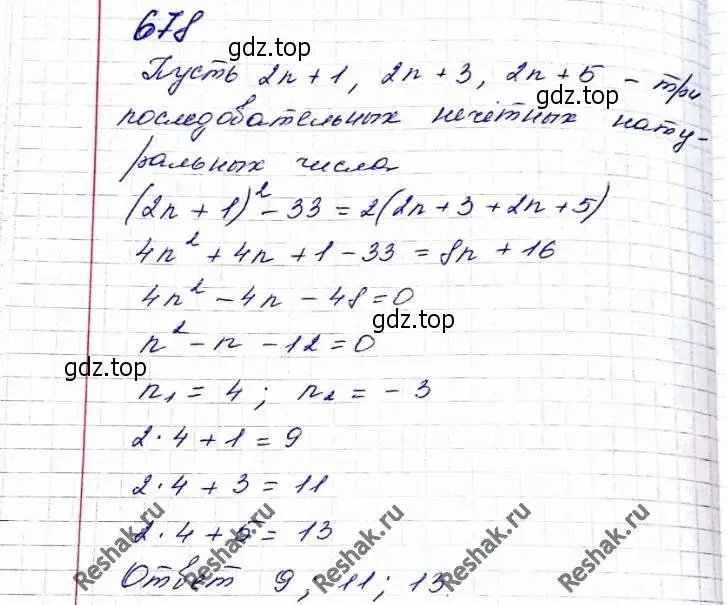 678
gdz.top
gdz.top
Пусть 2n + 1, 2n + 3, 2n + 5 - три
последовательных нечётных нату-
ральных числа
(2n + 1)² - 33 = 2(2n + 3 + 2n + 5)
4n² + 4n + 1 - 33 = 8n + 16
4n² - 4n - 48 = 0
gdz.top
n² - n - 12 = 0
gdz.top
n₁ = 4 ; n₂ = - 3
2·4 + 1 = 9
2·4 + 3 = 11
2·4 + 5 = 13
Ответ 9 ; 11 ; 13
Reshak.ru
Reshak.ru
Reshak.ru
Reshak.ru